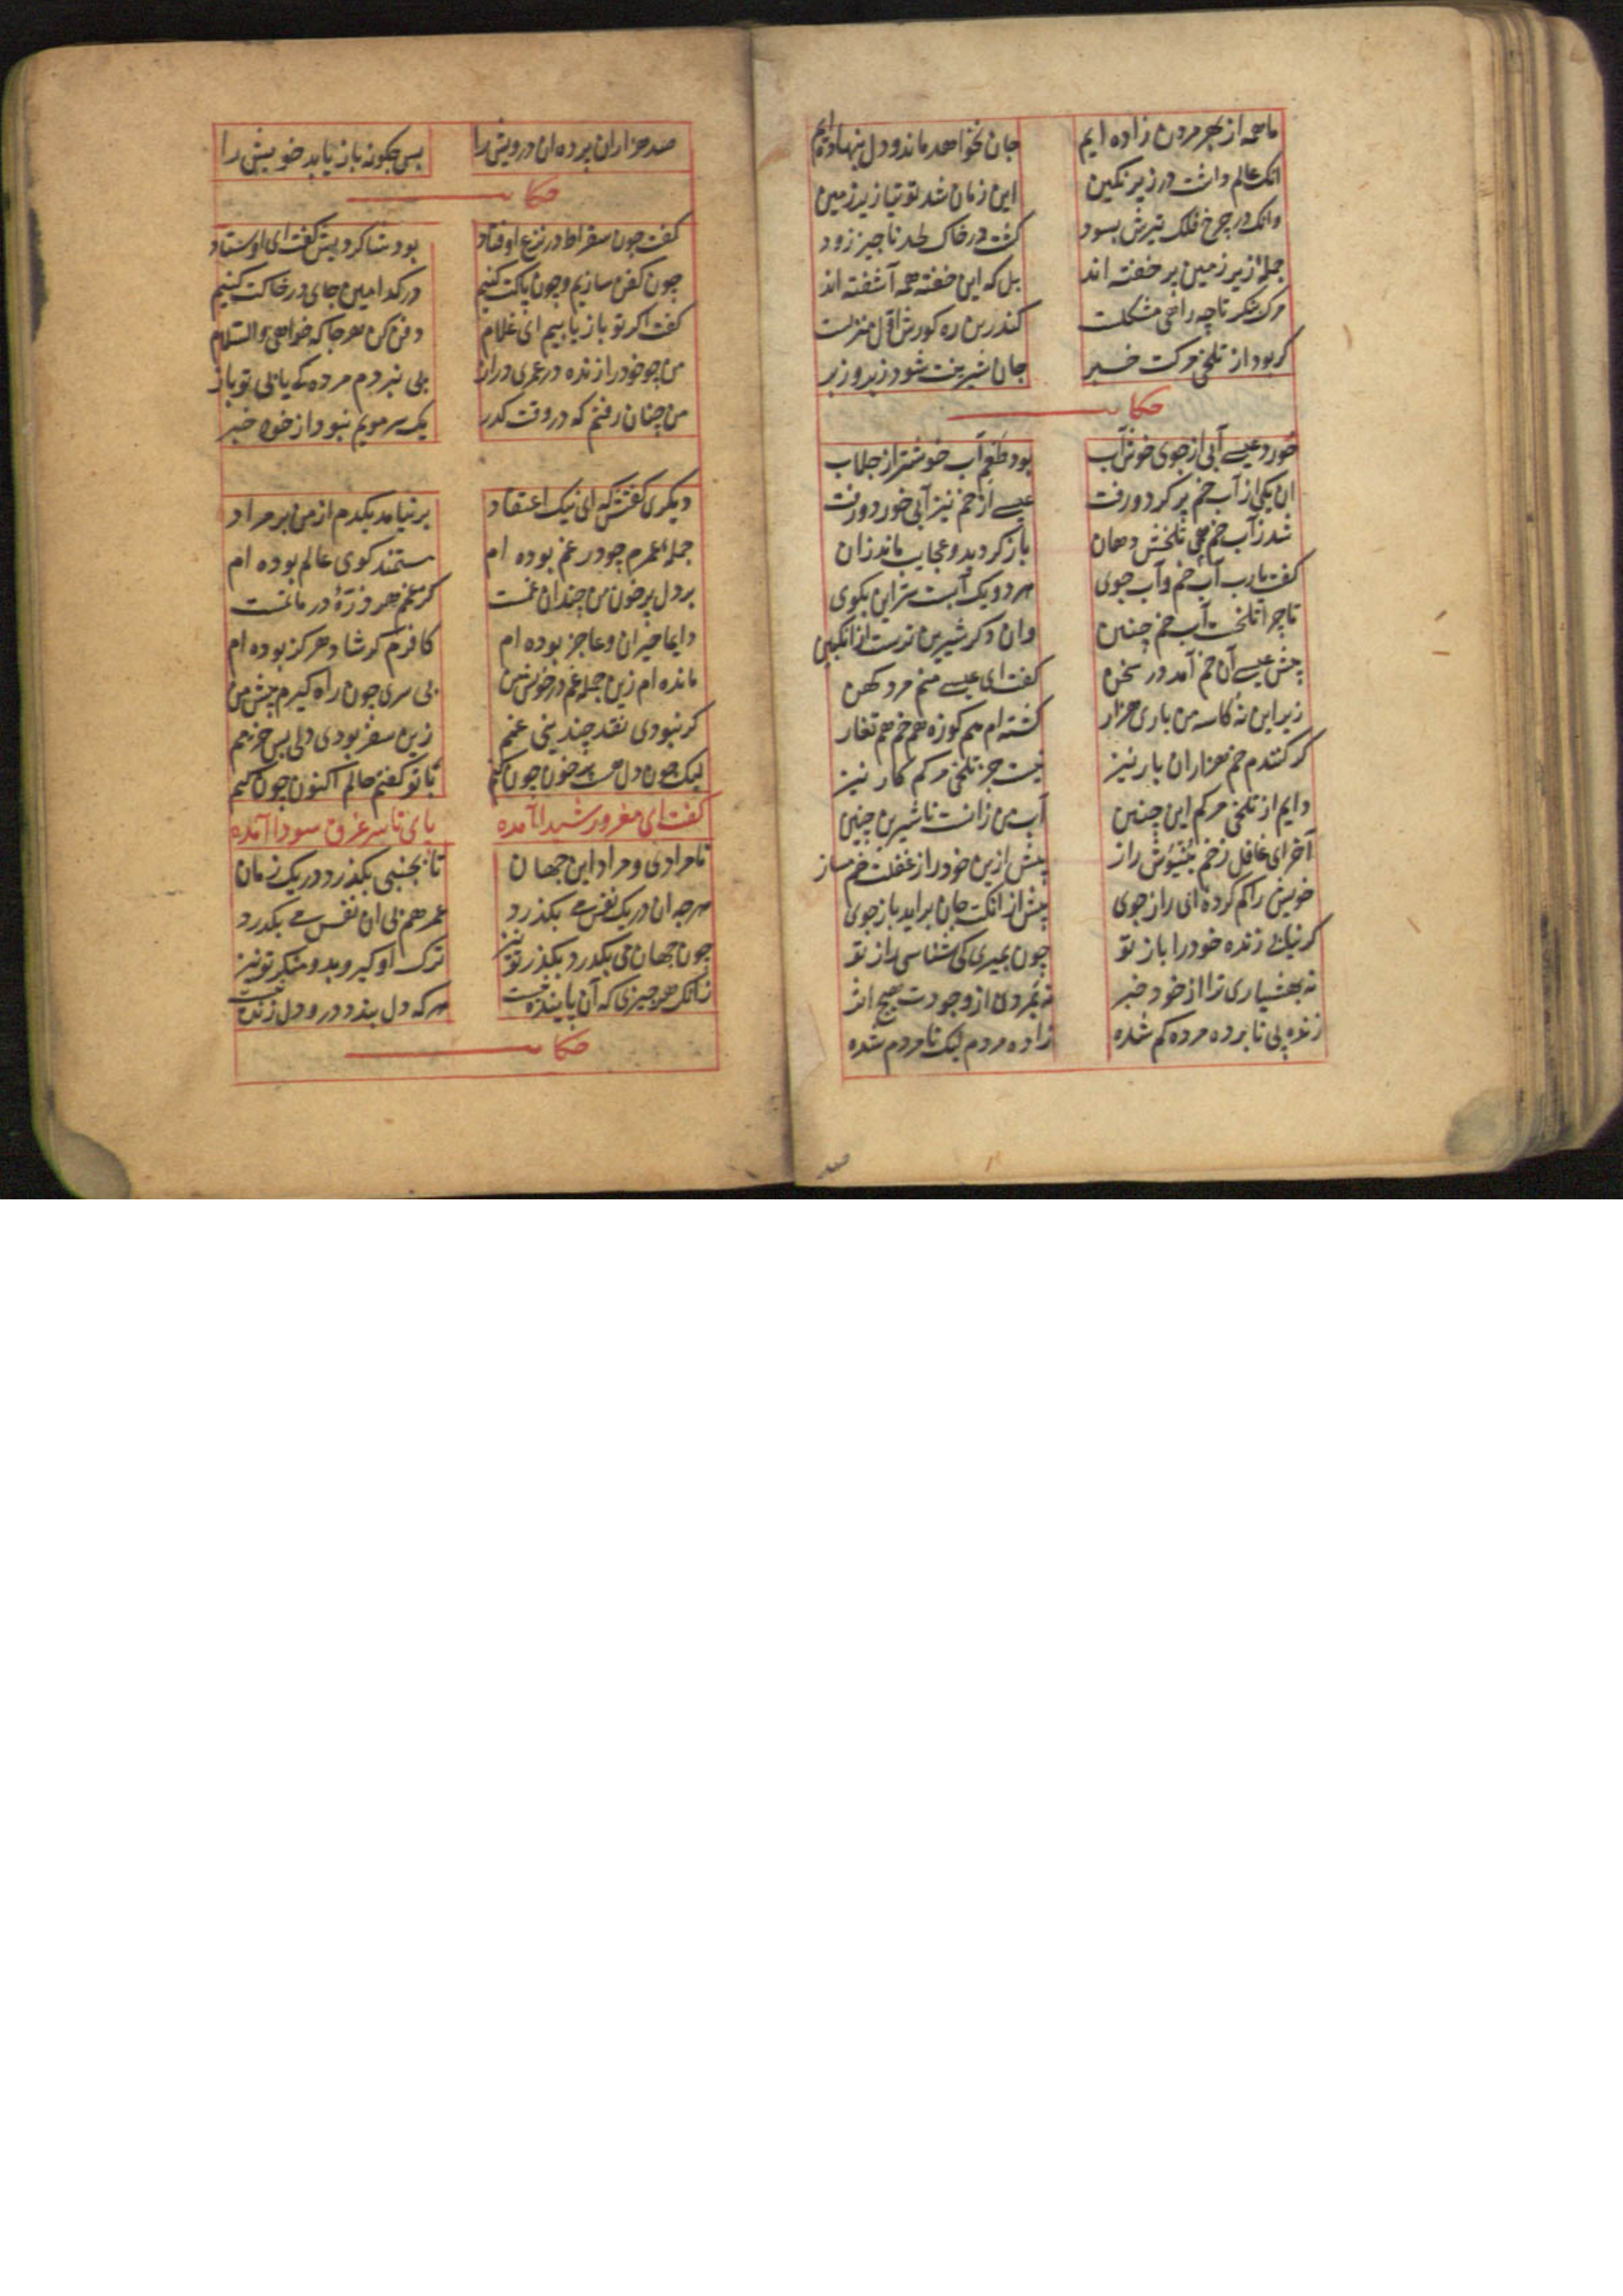 ما همه از بهر مردن زاده ایم جان نخواهد ماند و دل بنهاده ایم
انک عالم داشت در زیر نکین این زمان شد توتیا زیر زمین
وانک در چرخ فلک تیرش بسود کشت در خاک لحد ناجیز زود
جمله زیر زمین بر خفته اند بل که این خفته همه آشفته اند
مرک بنکر تا چه راهی مشکلت کندرین ره کورش اول منزلت
کر بود از تلخی مرکت خبر جان شیرینت شود زیر و زبر
حکایت
خورد عیسے آبی از جوی خوش آب بود طعم آب خوشتر از جلاب
ان یکی از آب خم پر کرد و رفت عیسے از خم نیز آبی خورد و رفت
شد ز آب خم همی تلخش دهان باز کردید و عجایب ماند زان
کفت یا رب آب خم و آب جوی هر دو یک آبست سر این بکوی
تا چرا تلخست آب خم چنین وان دکر شیرین ترست از انکبین
پیش عیسے آن خم آمد در سخن کفت ای عیسے منم مرد کهن
زیر این نه کاسه من باری هزار کشته ام هم کوزه هم خم هم تغار
کر کنندم خم هزاران بار نیز نیست جز تلخی مرکم کار نیز
دایم از تلخی مرکم این چنین آب من زانست ناشیرین چنین
آخر ای غافل ز خم بنیوش راز بیش ازین خود را ز غفلت خم مساز
خویش را کم کرده ای راز جوی پیش از انکت جان براید باز جوی
کر نیابی زنده خود را باز تو چون بمیری کی شناسی راز تو
نه بهشیاری ترا از خود خبر نه بمردی از وجودت هیچ اثر
زنده پی نابرده مرده کم شده زاده مردم لیک نامردم شده
صد
صد هزاران پرده ان درویش را پس چکونه باز یابد خویش را
حکایت
کفت چون سقراط در نزع اوفتاد بود شاکردیش کفت ای اوستاد
چون کفن سازیم و چون پاکت کنیم در کدامین جای در خاکت کنیم
کفت اکر تو باز یابیم ای غلام دفن کن هر جا که خواهی والسلام
من چو خود را زنده در عمری دراز پی نبردم مرده کے یابی تو باز
من چنان رفتم که در وقت کذر یک سر مویم نبود از خود خبر
دیکری کفتش که ای نیک اعتقاد بر نیامد یکدم از من بر مراد
جمله عمرم چو در غم بوده ام مستمند کوی عالم بوده ام
بر دل پر خون من چندان غمست کز غم هر ذرهٔ در ماتمست
دایما حیران و عاجز بوده ام کافرم کر شاد هرکز بوده ام
مانده ام زین جمله غم در خویش من بی سری چون راه کیرم پیش من
کر نبودی نقد چندینی غمم زین سفر بودی دلی بس خرمم
لیک چون دل هست پر خون چون کنم با تو کفتم حالم اکنون چون کنم
کفت ای مغرور شیدا آمده پای تا سر غرق سودا آمده
نامرادی و مراد این جهان تا بجنبی بکذرد در یک زمان
هرچه ان در یک نفس مے بکذرد عمر هم بی ان نفس مے بکذرد
چون جهان می بکذرد بکذر تو نیز ترک او کیر و بدو منکر تو نیز
زانک هر چیزی که آن پاینده نیست هر که دل بندد درو دل زنده نیست
حکایت